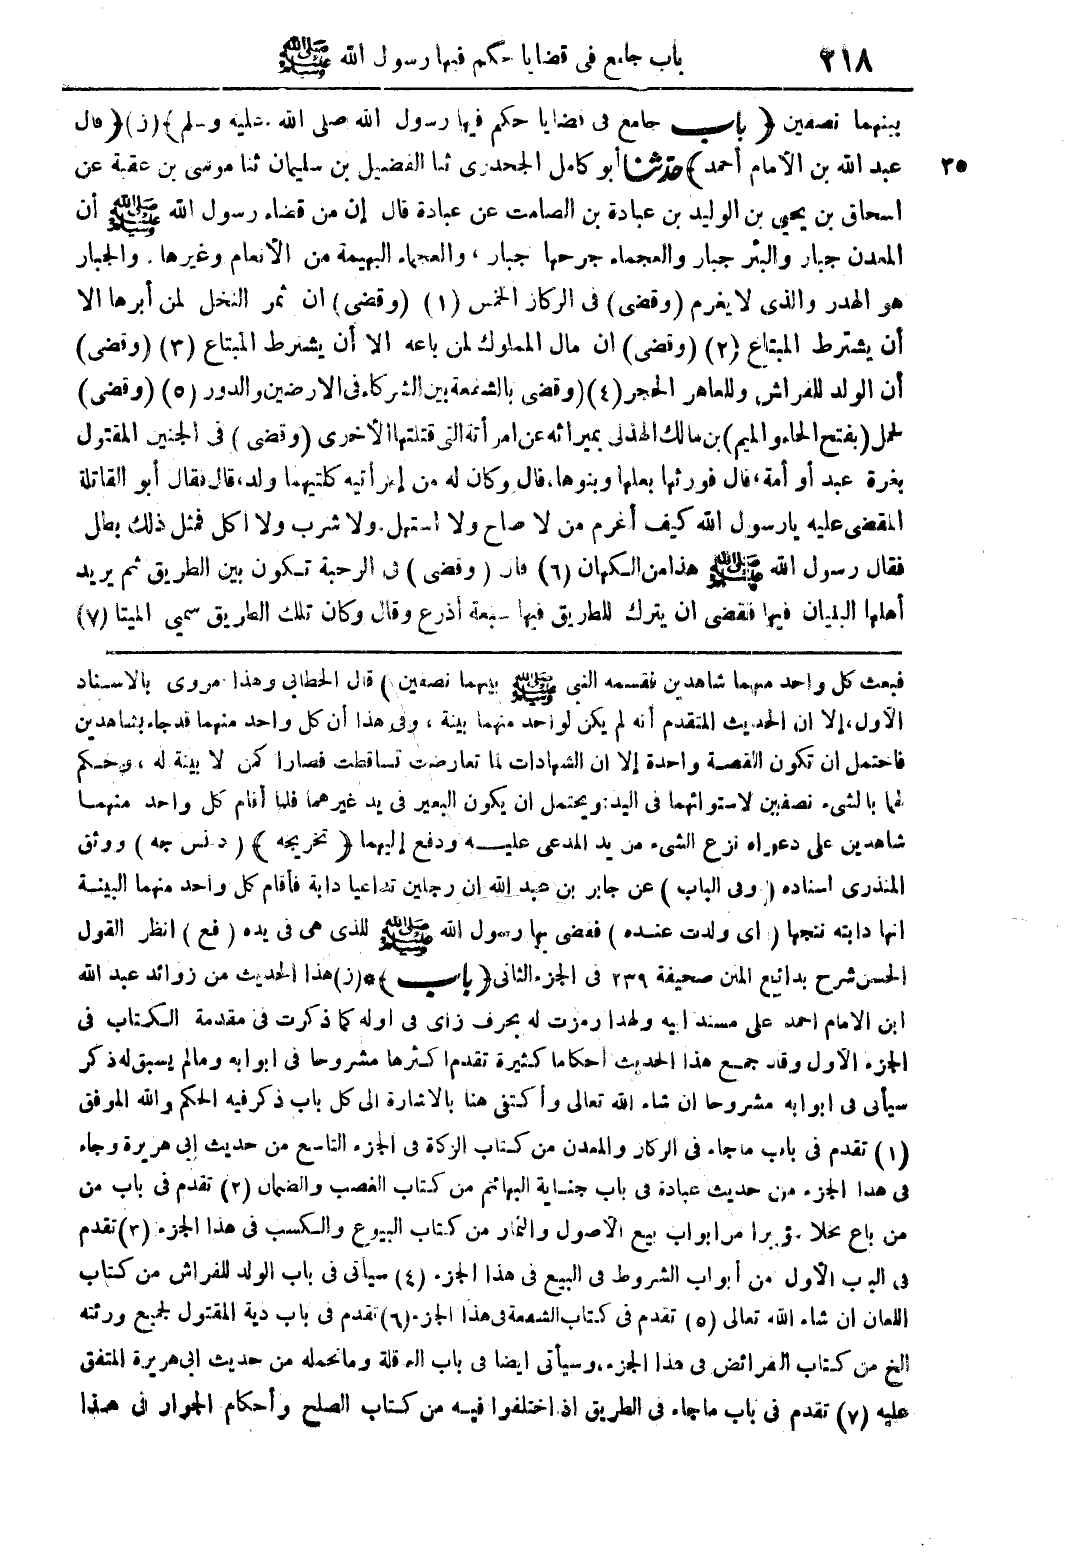 ٢١٨ باب جامع فى قضايا حكم فيها رسول الله ﷺ
بينهما نصفين ﴿ باب جامع فى قضايا حكم فيها رسول الله صلى الله عليه وسلم ﴾ (ز) ﴿ قال
٣٥ عبد الله بن الأمام أحمد ﴾ حدثنا أبو كامل الجحدرى ثنا الفضيل بن سليمان ثنا موسى بن عقبة عن
اسحاق بن يحيى بن الوليد بن عبادة بن الصامت عن عبادة قال إن من قضاء رسول الله ﷺ أن
المعدن جبار والبئر جبار والعجماء جرحها جبار ، والعجماء البهيمة من الأنعام وغيرها . والجبار
هو الهدر والذى لا يغرم (وقضى) فى الركاز الخمس (١) (وقضى) ان ثمر النخل لمن أبرها الا
أن يشترط المبتاع (٢) (وقضى) ان مال المملوك لمن باعه الا أن يشترط المبتاع (٣) (وقضى)
أن الولد للفراش وللعاهر الحجر (٤) (وقضى بالشفعة بين الشركاء فى الارضين والدور (٥) (وقضى)
لحمل (بفتح الحاء والميم) بن مالك الهذلى بميراثه عن امرأته التى قتلتها الأخرى (وقضى) فى الجنين المقتول
بغرة عبد أو أمة، قال فورثها بعلها وبنوها، قال وكان له من إمرأتيه كلتيهما ولد، قال فقال أبو القاتلة
المقضى عليه يارسول الله كيف أغرم من لا صاح ولا استهل. ولا شرب ولا اكل فمثل ذلك بطل
فقال رسول الله ﷺ هذا من الكهان (٦) قال (وقضى) فى الرحبة تكون بين الطريق ثم يريد
أهلها البنيان فيها فقضى ان يترك للطريق فيها سبعة أذرع وقال وكان تلك الطريق سمى الميتا (٧)
فبعث كل واحد منهما شاهدين فقسمه النبى ﷺ بينهما نصفين ) قال الخطابى وهذا مروى بالاسناد
الأول، إلا ان الحديث المتقدم أنه لم يكن لواحد منهما بينة ، وفى هذا أن كل واحد منهما قد جاء بشاهدين
فاحتمل ان تكون القصة واحدة إلا ان الشهادات لما تعارضت تساقطت فصارا كمن لا بينة له ، وحكم
لهما بالشىء نصفين لاستوائهما فى اليد: ويحتمل ان يكون البعير فى يد غيرهما فلما أقام كل واحد منهما
شاهدين على دعواه نزع الشىء من يد المدعى عليه ودفع إليهما ﴿ تخريجه ﴾ ( د نس جه ) ووثق
المنذرى اسناده ( وفى الباب ) عن جابر بن عبد الله ان رجلين تداعيا دابة فأقام كل واحد منهما البينة
انها دابته نتجها ( اى ولدت عنده ) فقضى بها رسول الله ﷺ للذى هى فى يده ( فع ) انظر القول
الحسن شرح بدائع المنن صحيفة ٢٣٩ فى الجزء الثانى ﴿ باب ﴾ * (ز) هذا الحديث من زوائد عبد الله
ابن الامام احمد على مسند ابيه ولهذا رمزت له بحرف زاى فى اوله كما ذكرت فى مقدمة الكتاب فى
الجزء الأول وقد جمع هذا الحديث أحكاما كثيرة تقدم اكثرها مشروحا فى ابوابه ومالم يسبق له ذكر
سيأتى فى ابوابه مشروحا ان شاء الله تعالى وأكتفى هنا بالاشارة الى كل باب ذكر فيه الحكم والله الموفق
(١) تقدم فى باب ماجاء فى الركاز والمعدن من كتاب الزكاة فى الجزء التاسع من حديث ابى هريرة وجاء
فى هذا الجزء من حديث عبادة فى باب جناية البهائم من كتاب الغصب والضمان (٢) تقدم فى باب من
من باع نخلا مؤبرا من ابواب بيع الأصول والثمار من كتاب البيوع والكسب فى هذا الجزء (٣) تقدم
فى الباب الأول من أبواب الشروط فى البيع فى هذا الجزء (٤) سيأتى فى باب الولد للفراش من كتاب
اللعان ان شاء الله تعالى (٥) تقدم فى كتاب الشفعة فى هذا الجزء (٦) تقدم فى باب دية المقتول لجميع ورثته
الخ من كتاب الفرائض فى هذا الجزء، وسيأتى ايضا فى باب العاقلة وما تحمله من حديث ابى هريرة المتفق
عليه (٧) تقدم فى باب ماجاء فى الطريق اذا اختلفوا فيه من كتاب الصلح وأحكام الجوار فى هذا